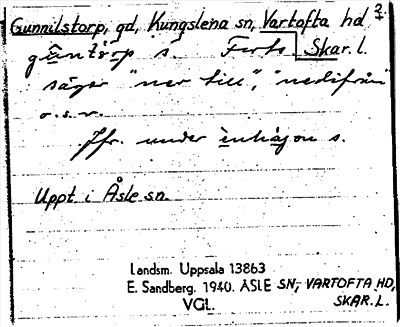 Gunnilstorp, gd, Kungslena sn, Vartofta hd 2
gæ̀ntŏrp s. Forts. Skar. l.
säger "ner till", "nedifrån"
o.s.v.
Jfr. under ènhágon s.
Uppt i Åsle sn.
Landsm. Uppsala 13863
E. Sandberg. 1940. ÅSLE SN, VARTOFTA HD,
VGL. SKAR. L.